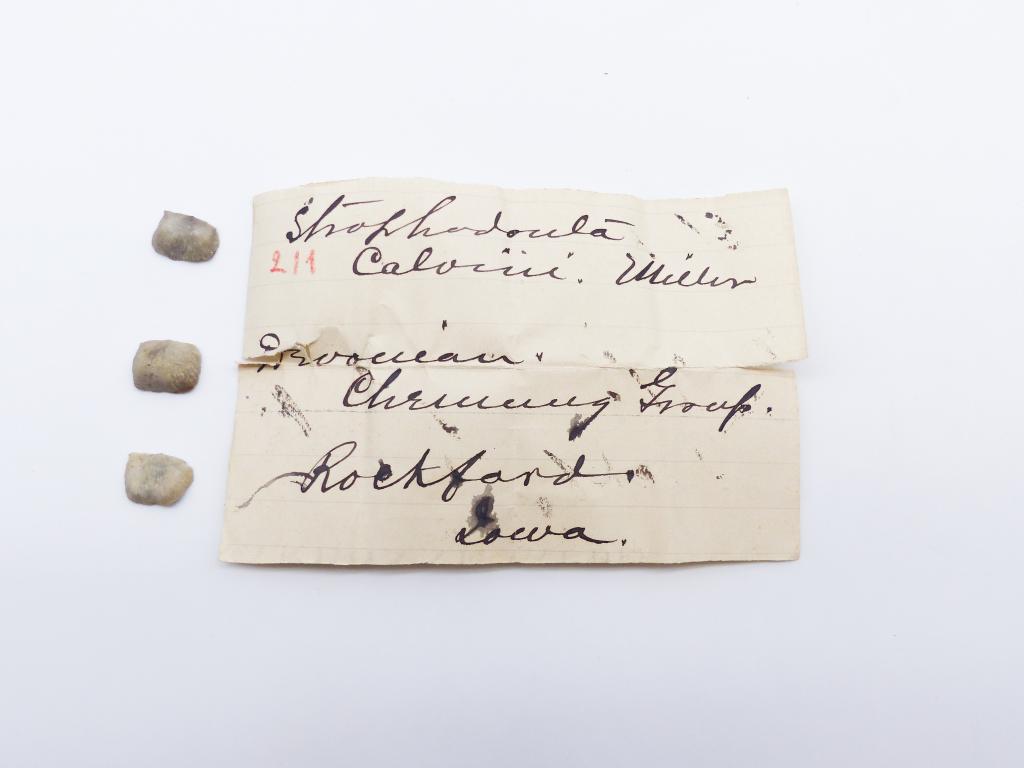 Strophodonta
211 Calvini. Miller
Devonian.
Chemung Group.
Rockford.
Iowa.